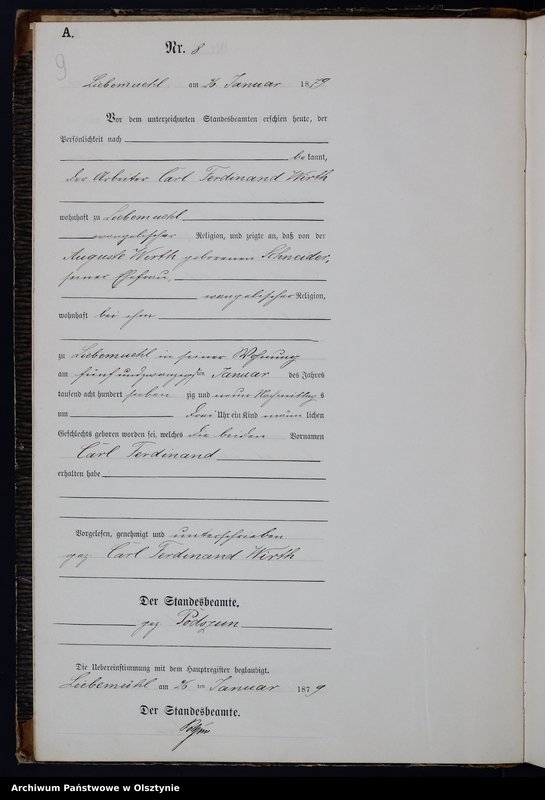 A.
Nr. 8
9
Liebemuehl am 26 Januar 1879
Vor dem unterzeichneten Standesbeamten erschien heute, der
Persönlichkeit nach
bekannt,
der Arbeiter Carl Ferdinand Wirth
wohnhaft zu Liebemuehl
evangelischer Religion, und zeigte an, daß von der
Auguste Wirth geborenen Schneider,
seiner Ehefrau,
evangelischer Religion,
wohnhaft bei ihm
zu Liebemuehl in seiner Wohnung
am fünf und zwanzigsten Januar des Jahres
tausend acht hundert sieben zig und neun Nachmittags
um drei Uhr ein Kind männlichen
Geschlechts geboren worden sei, welches die beiden Vornamen
Carl Ferdinand
erhalten habe
Vorgelesen, genehmigt und unterschrieben
gez. Carl Ferdinand Wirth
Der Standesbeamte.
gez
Die Uebereinstimmung mit dem Hauptregister beglaubigt.
Liebemühl am 26ten Januar 1879
Der Standesbeamte.
Archiwum Państwowe w Olsztynie